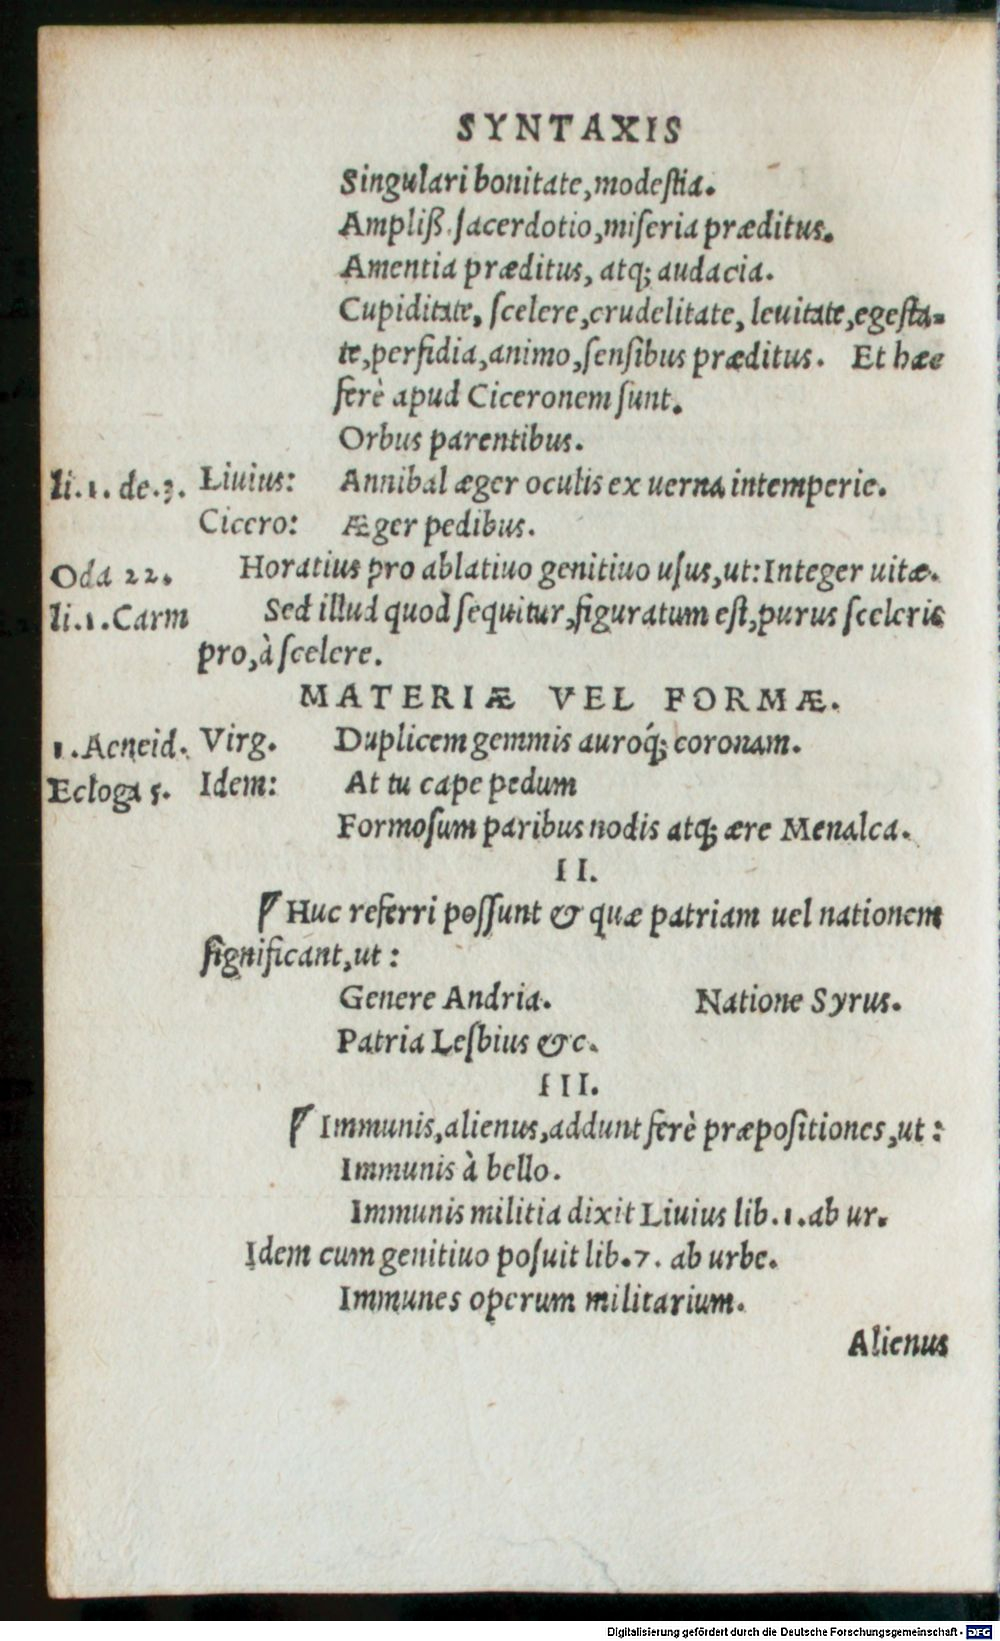 SYNTAXIS
Singulari bonitate, modeſtia.
Ampliß. ſacerdotio, miſeria præditus.
Amentia præditus, atq; audacia.
Cupiditate, ſcelere, crudelitate, leuitate, egeſta-
te, perfidia, animo, ſenſibus præditus. Et hæc
ferè apud Ciceronem ſunt.
Orbus parentibus.
li.1. de.3. Liuius: Annibal æger oculis ex uerna intemperie.
Cicero: Æger pedibus.
Oda 22. Horatius pro ablatiuo genitiuo uſus, ut: Integer uitæ.
li.1.Carm Sed illud quod ſequitur, figuratum eſt, purus ſceleris
pro, à ſcelere.
MATERIÆ VEL FORMÆ.
1.Aeneid. Virg. Duplicem gemmis auroq́; coronam.
Ecloga 5. Idem: At tu cape pedum
Formoſum paribus nodis atq; ære Menalca.
II.
Huc referri poſſunt & quæ patriam uel nationem
ſignificant, ut:
Genere Andria. Natione Syrus.
Patria Leſbius &c.
III.
Immunis, alienus, addunt ferè præpoſitiones, ut:
Immunis à bello.
Immunis militia dixit Liuius lib.1.ab ur.
Idem cum genitiuo poſuit lib.7. ab urbe.
Immunes operum militarium.
Alienus
Digitalisierung gefördert durch die Deutsche Forschungsgemeinschaft - DFG